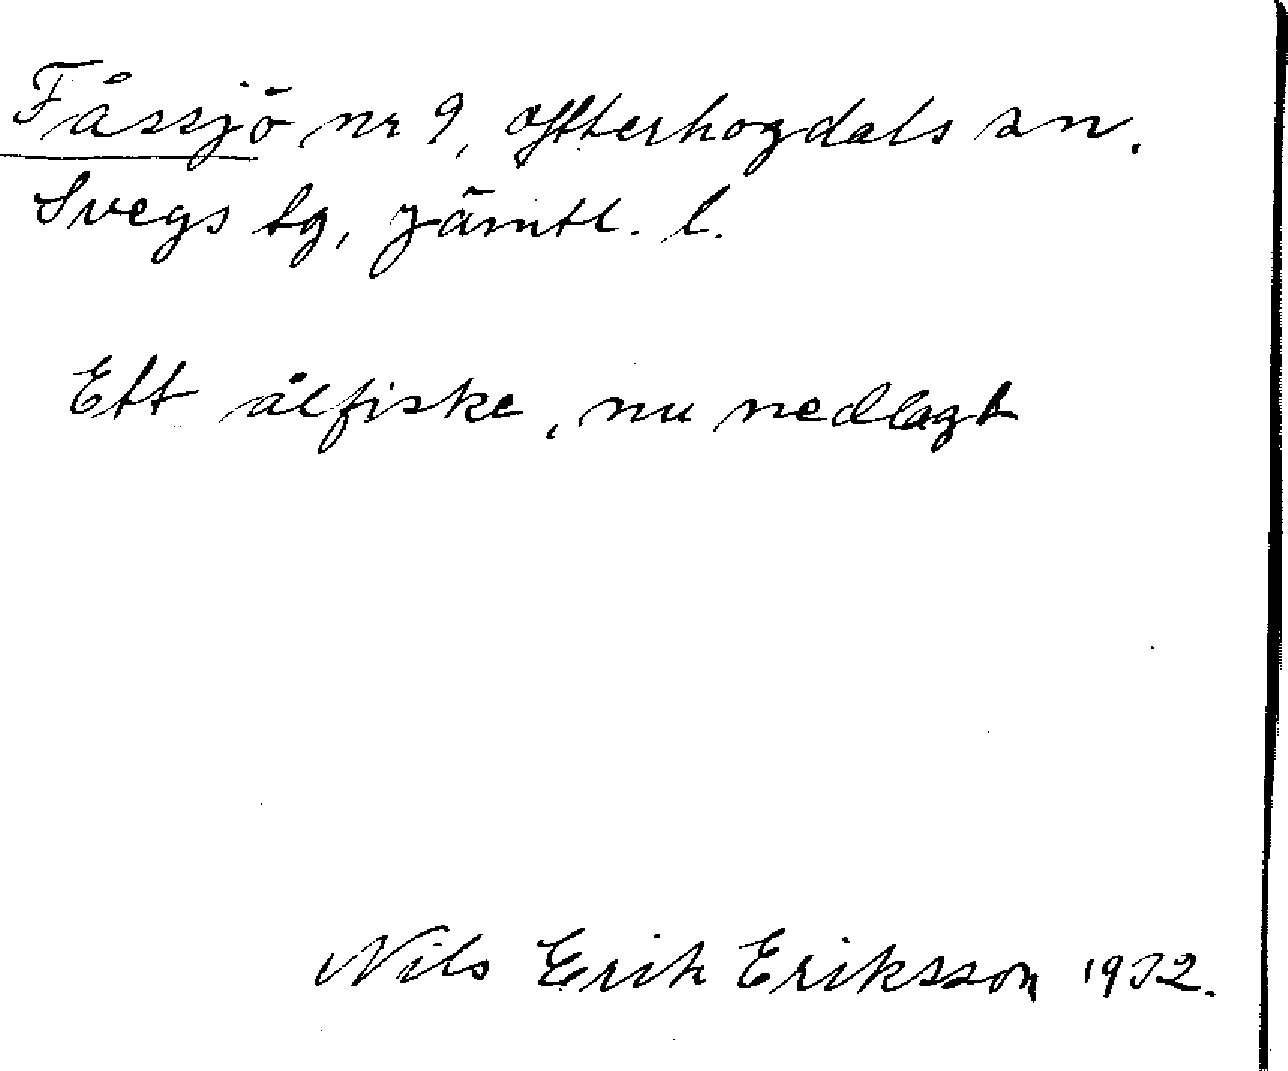 Fåssjö nr 9, Ytterhogdals sn.
Svegs tg, Jämtl. l.
Ett ålfiske, nu nedlagt
Nils Erik Eriksson 1932.